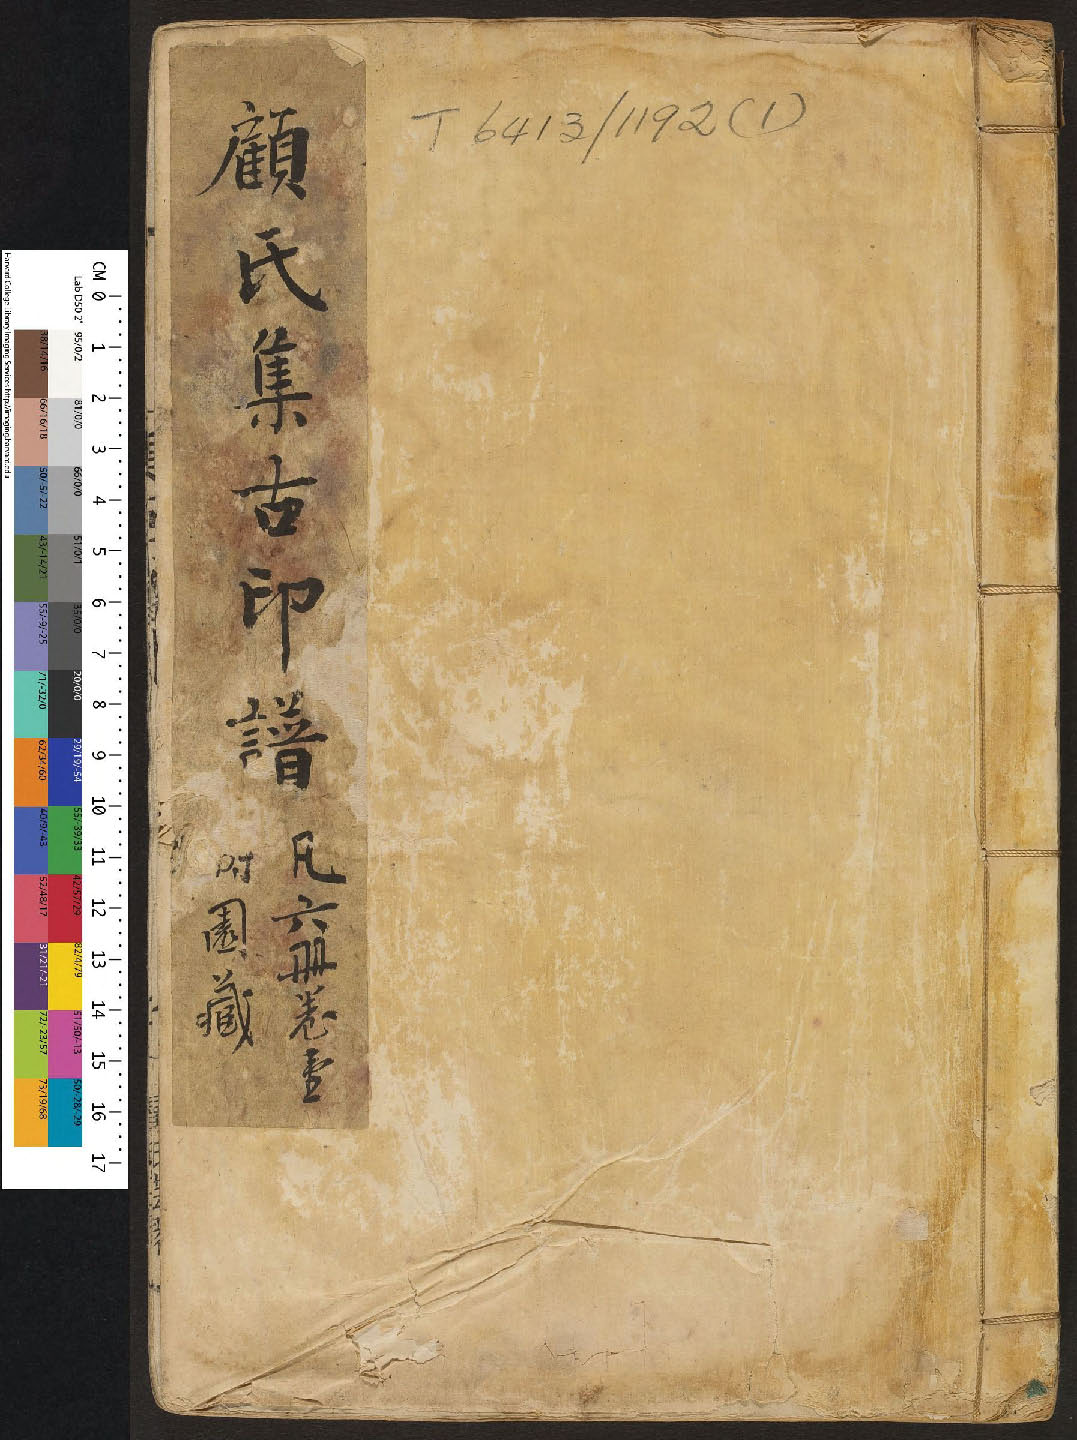 T 6413/1192(1)
顧氏集古印譜
凡六冊卷壹
附園藏
CM 0 1 2 3 4 5 6 7 8 9 10 11 12 13 14 15 16 17
Lab D50 2°
95/0/2
81/0/0
66/0/0
51/0/1
35/0/0
20/0/0
29/19/-54
55/-39/33
42/57/29
82/4/79
51/50/-13
50/-28/-29
38/14/16
66/16/18
50/-5/-22
43/-14/21
55/9/-25
71/-32/0
62/34/60
40/9/-43
52/48/17
31/21/-21
72/-23/57
73/19/68
Harvard College Library Imaging Services http://imaging.harvard.edu